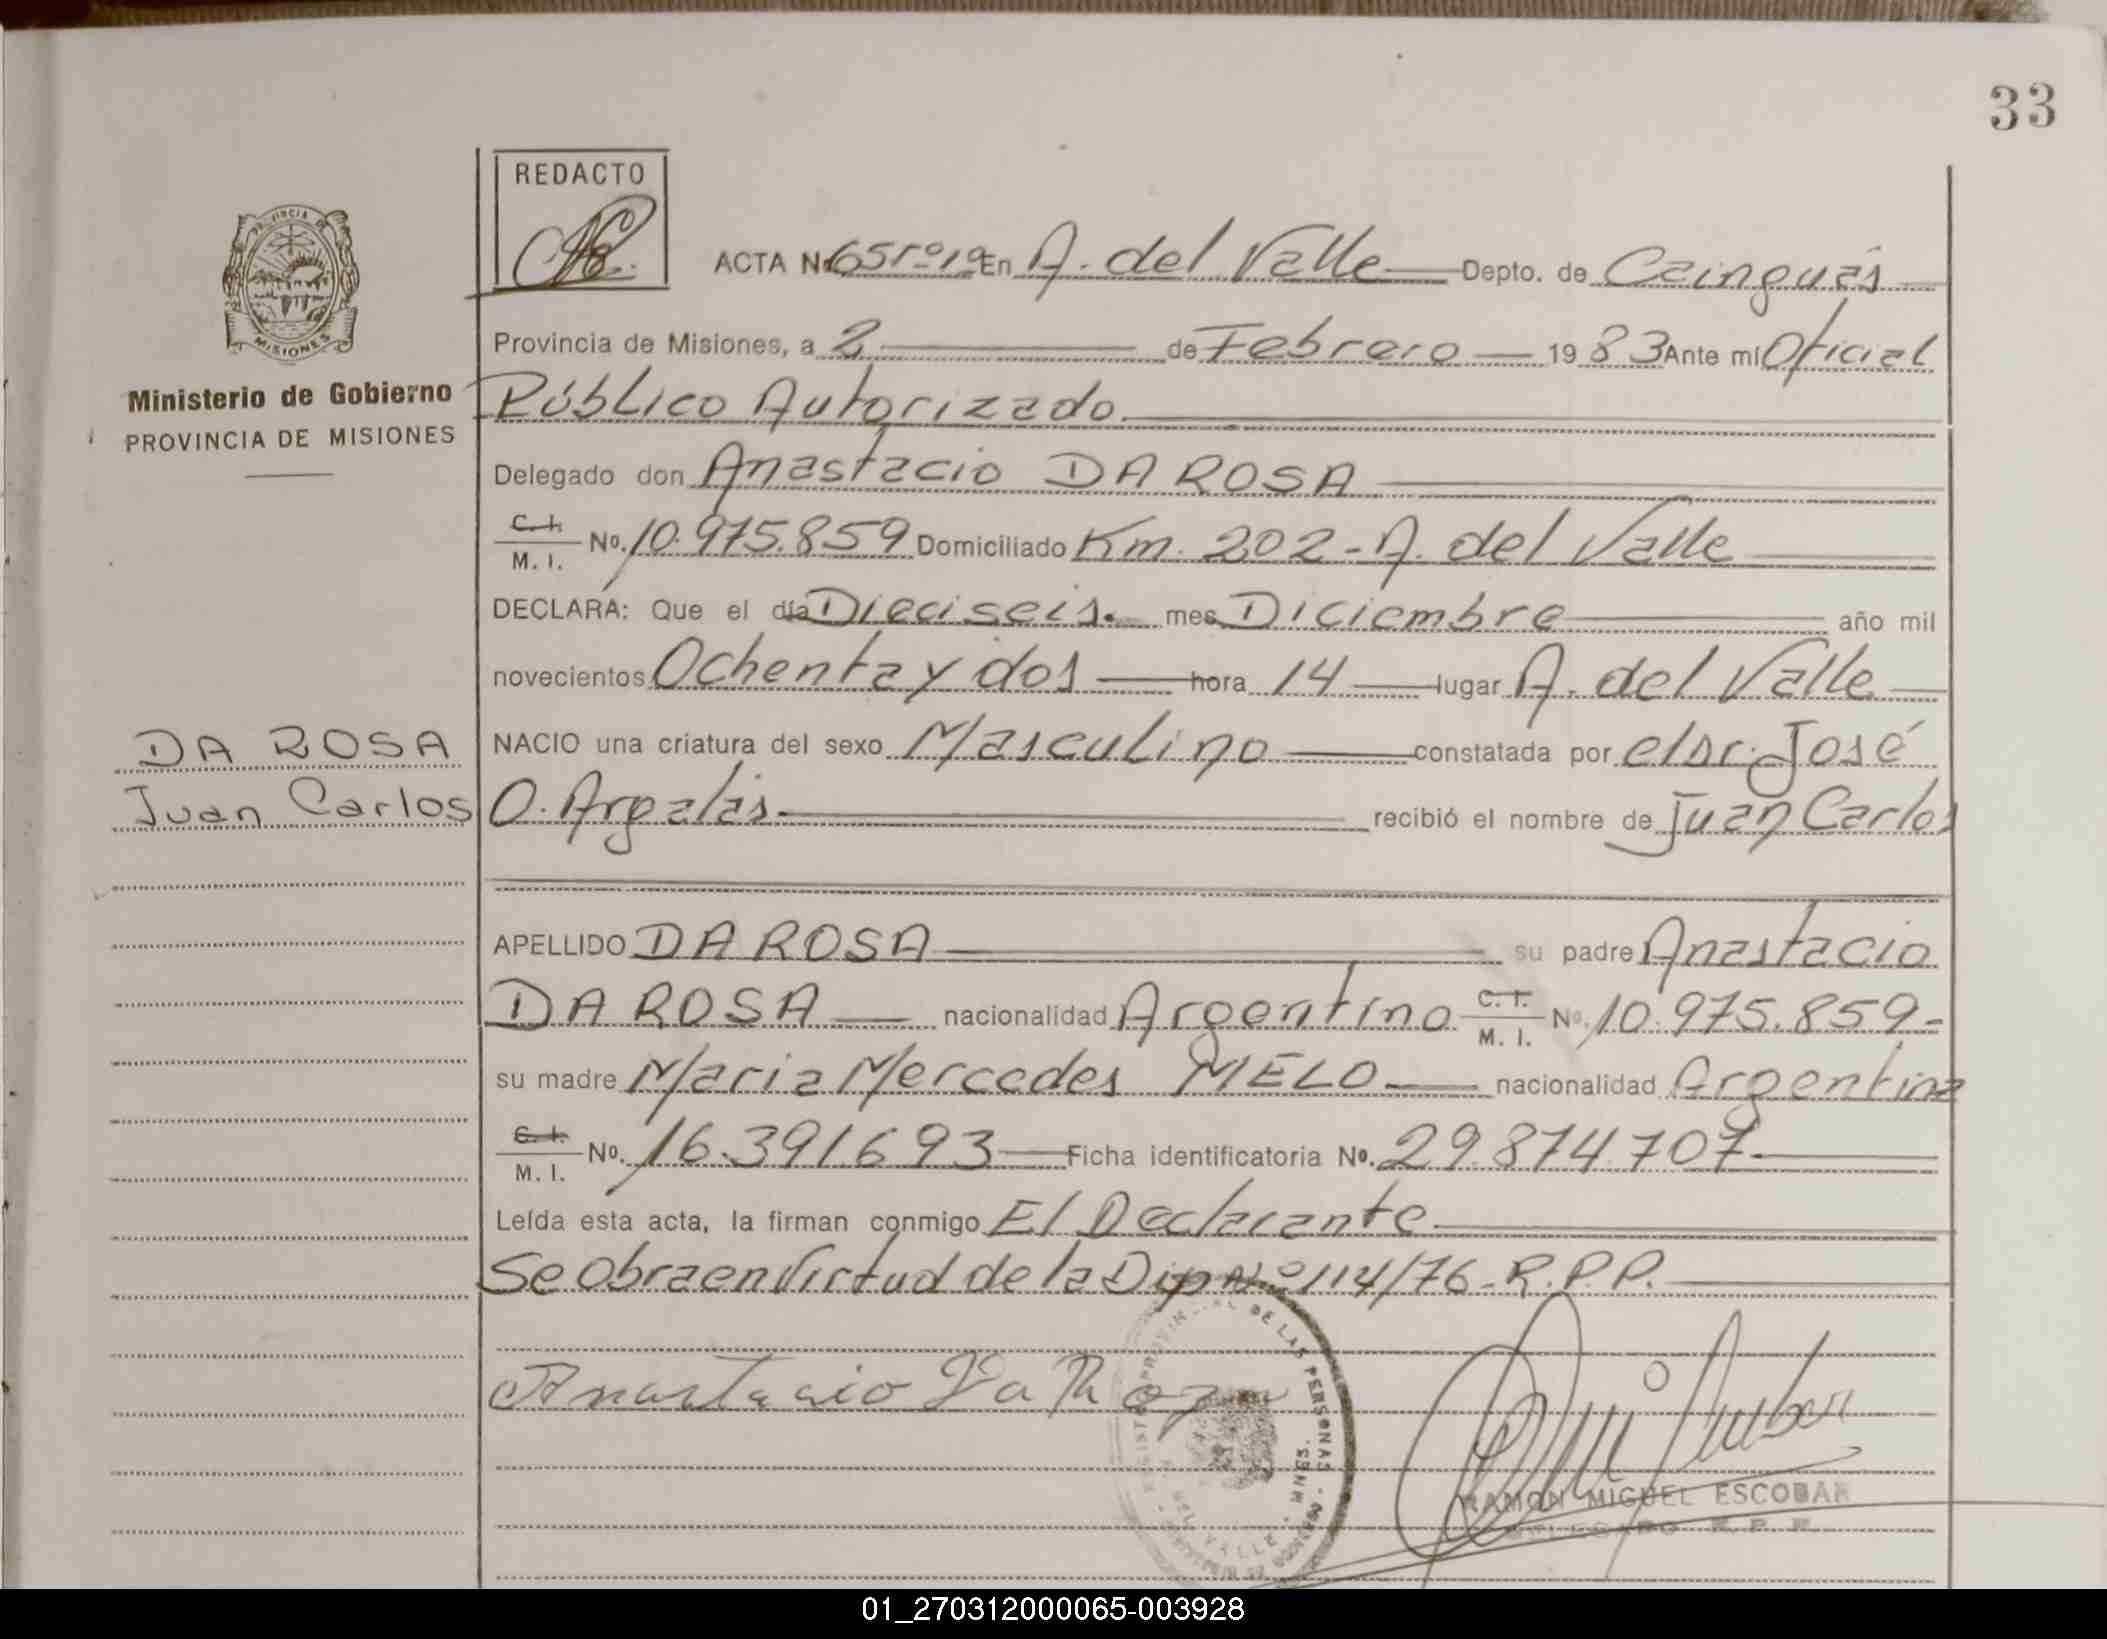 33
REDACTO
ACTA Nº 65 Tº 1º En A. del Valle Depto. de Cainguás
Provincia de Misiones, a 2 de Febrero 1983 Ante mí Oficial
Público Autorizado
Ministerio de Gobierno
PROVINCIA DE MISIONES
MISIONES
Delegado don Anastacio DA ROSA
C. I.
M. I. Nº. 10.975.859 Domiciliado Km. 202 - A. del Valle
DECLARA: Que el día Dieciseis. mes Diciembre año mil
novecientos Ochenta y dos hora 14 lugar A. del Valle
DA ROSA
Juan Carlos
NACIO una criatura del sexo Masculino constatada por el Dr. José
O. Argalás. recibió el nombre de Juan Carlos
APELLIDO DA ROSA su padre Anastacio
DA ROSA nacionalidad Argentino C. I.
M. I. Nº. 10.975.859-
su madre Maria Mercedes MELO nacionalidad Argentina
C. I.
M. I. Nº. 16.391.693 Ficha identificatoria Nº. 29.874.707
Leída esta acta, la firman conmigo El Declarante
Se Obra en Virtud de la Disp Nº 114/76-R.P.P.
Anastacio Da Roza
DE LAS PERSONAS
DEL VALLE - MNES.
RAMON MIGUEL ESCOBAR
DELEGADO R. P. P.
01_270312000065-003928